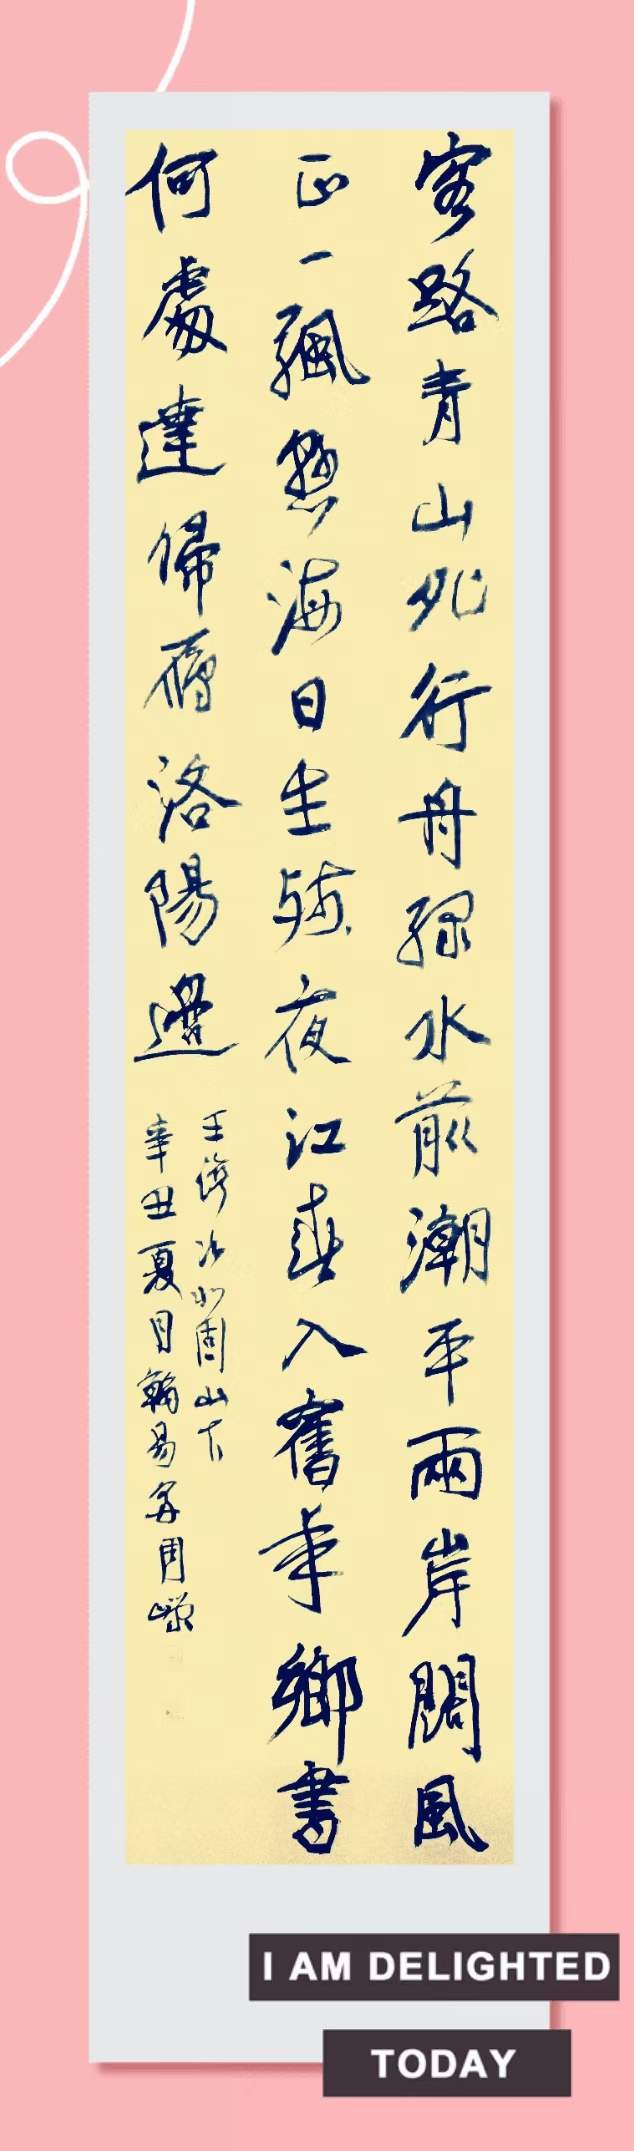 客路青山外行舟緑水前潮平兩岸闊風
正一颿懸海日生殘夜江春入舊年鄉書
何處達歸鴈洛陽邊
王灣次北固山下
辛丑夏月翰易周
I AM DELIGHTED
TODAY